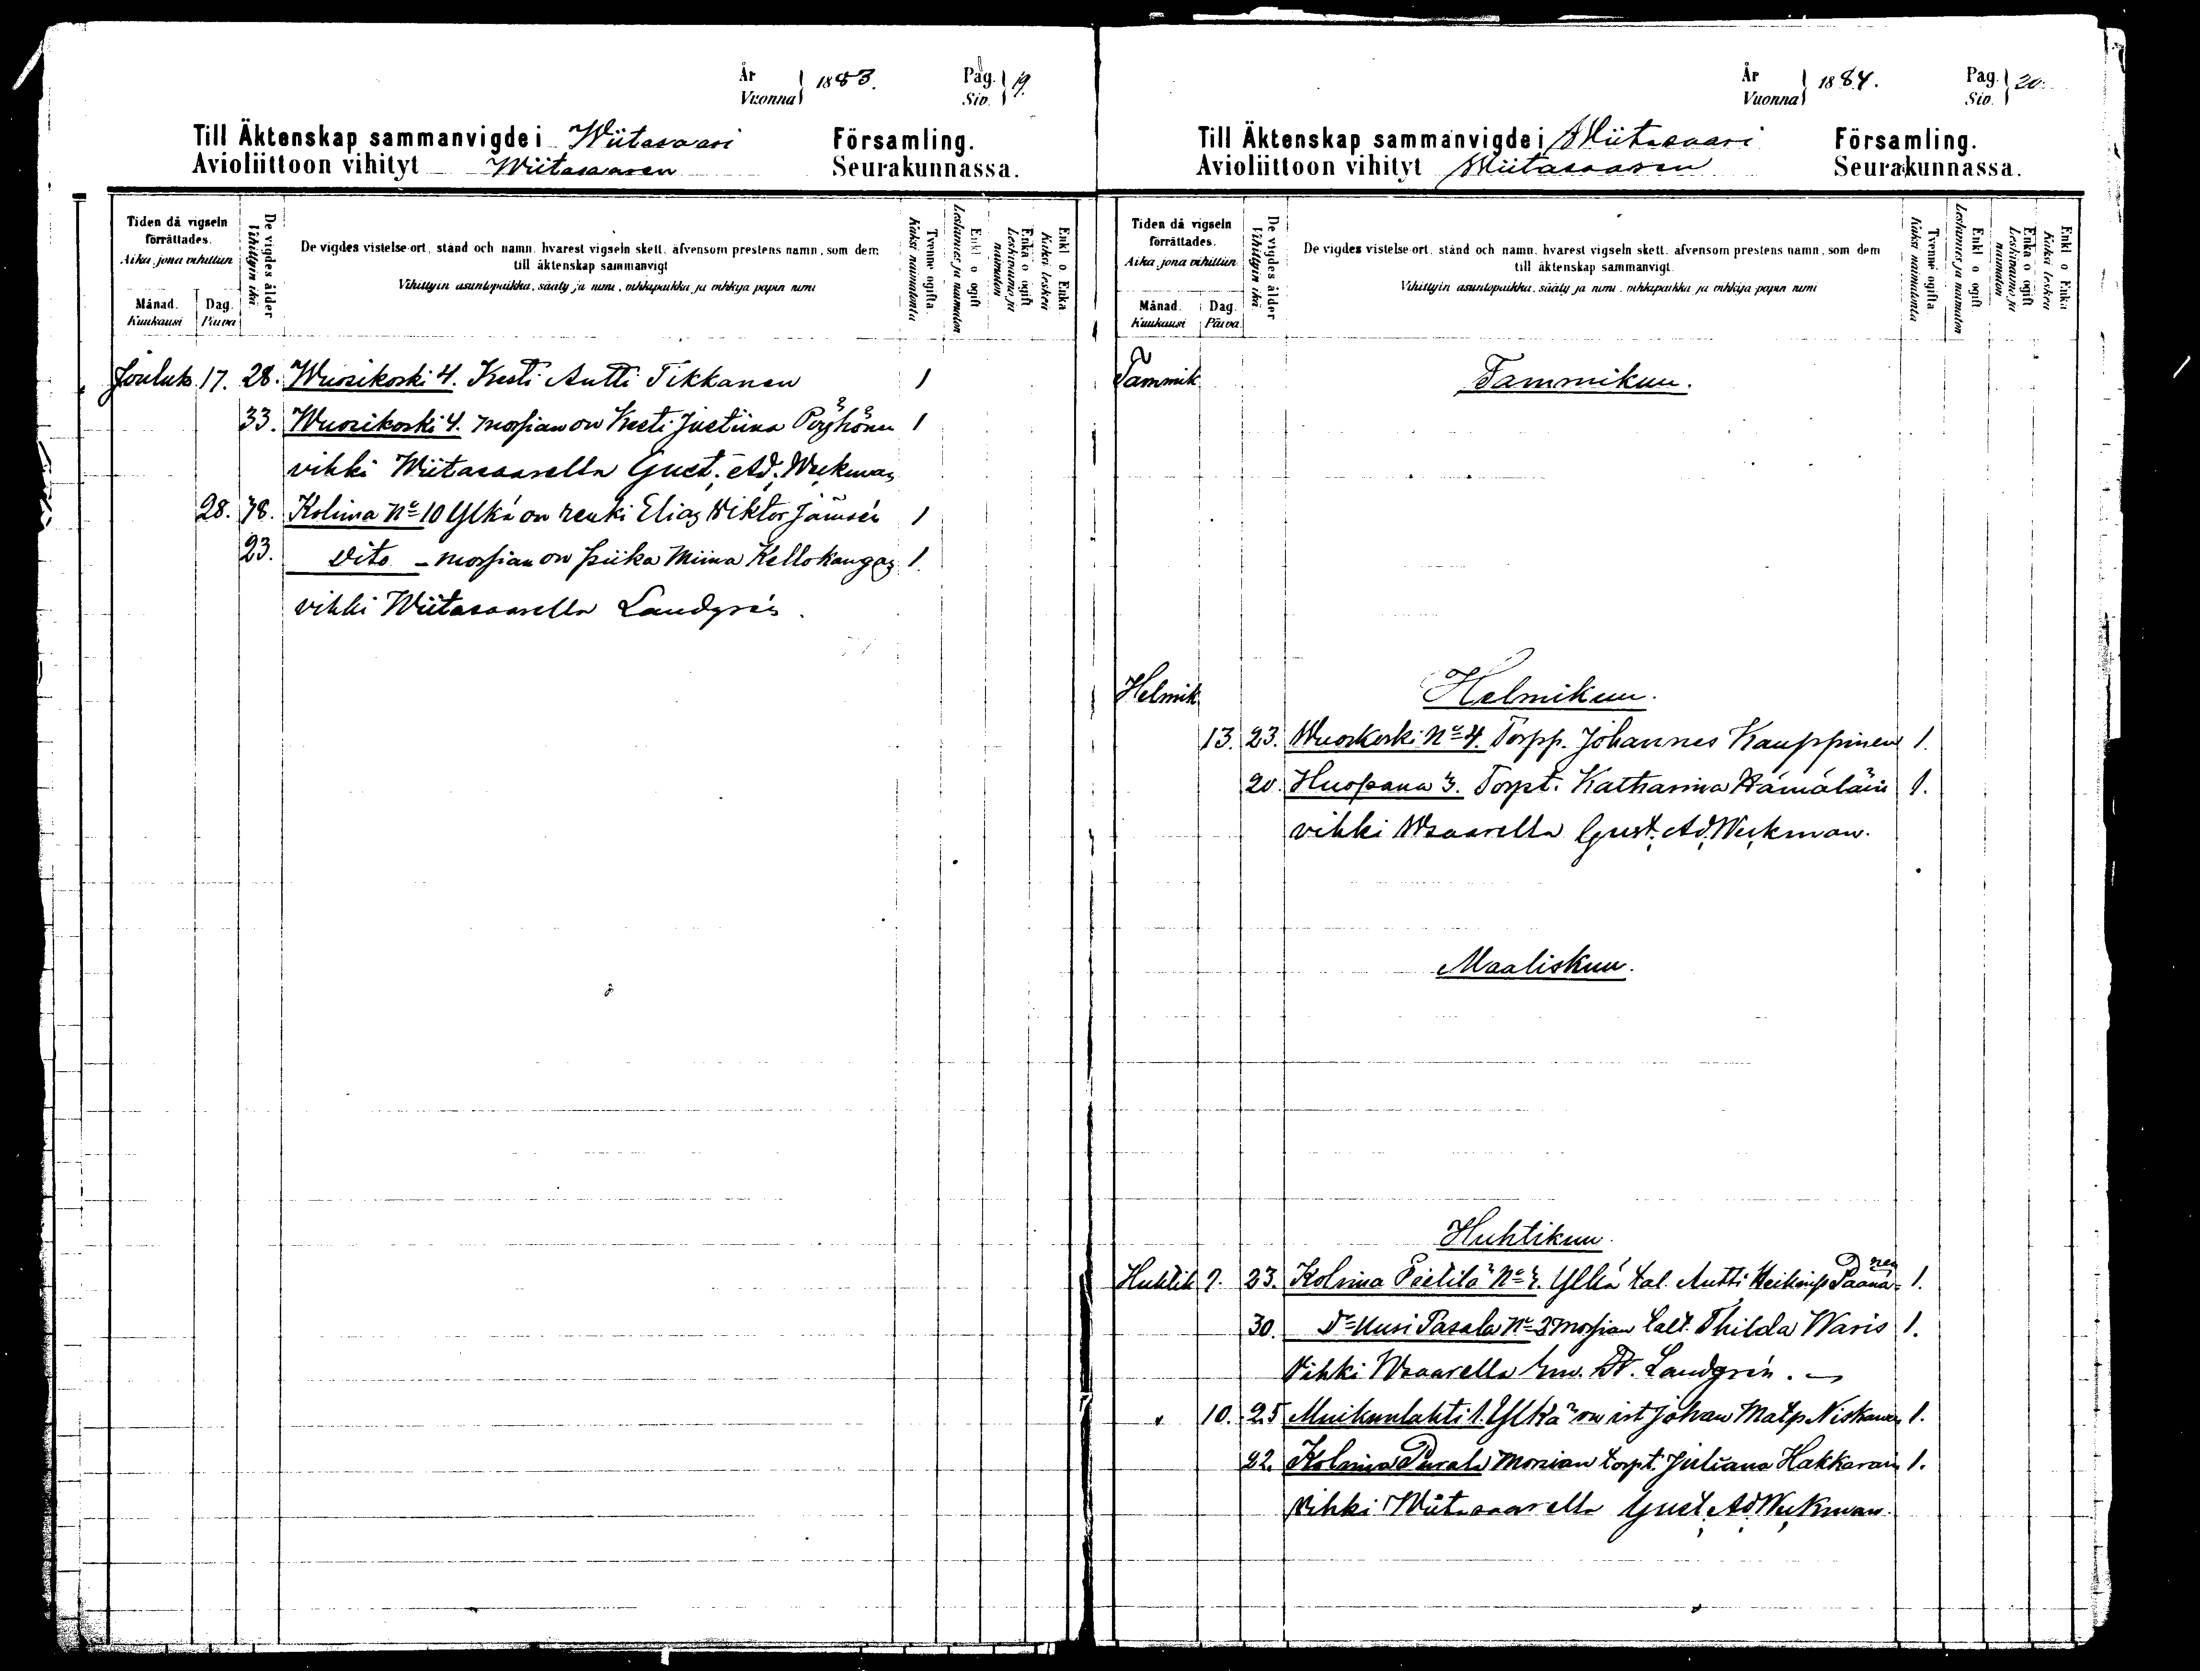 År Vuonna 1883. Pag. Siv. 19.
Till Äktenskap sammanvigde i Wiitasaari Församling.
Avioliittoon vihityt Wiitasaaren Seurakunnassa.
Tiden då vigseln förrättades.
Aika, jona vihittiin
Månad. Kuukausi
Dag. Päivä
De vigdes ålder
Vihittyin ikä
De vigdes vistelse-ort, stånd och namn, hvarest vigseln skett, äfvensom prestens namn, som dem
till äktenskap sammanvigt
Vihittyin asuntopaikka, sääty ja nimi, vihkipaikka ja vihkijä papin nimi
Tvenne ogifta
Kaksi naimatonta
Enkl. o ogift
Leskimies ja naimaton
Enka o ogift
Leskivaimo ja naimaton
Enkl o Enka
Kaksi leskeä
Jouluk. 17. 28. Wuosikoski 4. Kesti Antti Tikkanen 1
33. Wuosikoski 4. morsian on Kesti Justiina Pöyhönen 1
vihki Wiitasaarella Gust. Ad. Weckman
28. 38. Kolima No 10 Ylkä on renki Elias Wiktor Jämsén 1
23. Dito - morsian on piika Miina Kellokangas 1.
vihki Wiitasaarella Landgrén.
År Vuonna 1884. Pag. Siv. 20.
Till Äktenskap sammanvigde i Wiitasaari Församling.
Avioliittoon vihityt Wiitasaaren Seurakunnassa.
Tiden då vigseln förrättades.
Aika, jona vihittiin
Månad. Kuukausi
Dag. Päivä
De vigdes ålder
Vihittyin ikä
De vigdes vistelse-ort, stånd och namn, hvarest vigseln skett, äfvensom prestens namn, som dem
till äktenskap sammanvigt.
Vihittyin asuntopaikka, sääty ja nimi, vihkipaikka ja vihkijä papin nimi
Tvenne ogifta
Kaksi naimatonta
Enkl. o ogift
Leskimies ja naimaton
Enka o ogift
Leskivaimo ja naimaton
Enkl o Enka
Kaksi leskeä
Tammik Tammikuu.
Helmik Helmikuu.
13. 23. Wuoskoski No 4. Torpp. Johannes Kauppinen 1.
20. Huopana 3. Torpt. Katharina Hämäläin 1.
vihki Wsaarella Gust. Ad. Weckman.
Maaliskuu.
Huhtikuu.
Huhtik 7. 23. Kolima Pietilä No Ylkä tal. Antti Heikinp Paananen 1.
30. Do Uusi Pasala No 3 morsian talt. Thilda Waris 1.
Vihki Wsaarella Landgrén.
" 10. 25 Muikunlahti 1. Ylkä on ist Johan Matp Niskanen 1.
22. Kolima Purala Morsian torpt. Juliana Hakkarain 1.
Vihki Wiitasaarella Gust. Ad. Weckman.